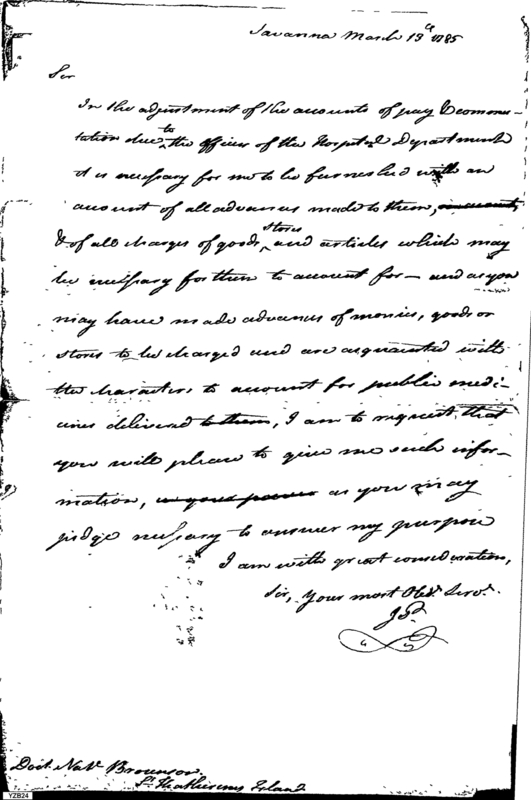 Savanna March 19th 1785
Sir
In the adjustment of the accounts of pay & commu-
tation due to the officers of the Hospital Department
it is necessary for me to be furnished with an
account of all advances made to them,
& of all charges of goods, stores and articles which may
be necessary for them to account for — and as you
may have made advances of monies, goods or
stores to be charged and are acquainted with
the characters to account for public medi-
cines delivered to them, I am to request that
you will please to give me such infor-
mation, in your power as you may
judge necessary to answer my purpose
I am with great consideration,
Sir, your most Obedt. Servt.
Doct. Natl. Brownson
St. Katherines Island
YZB24